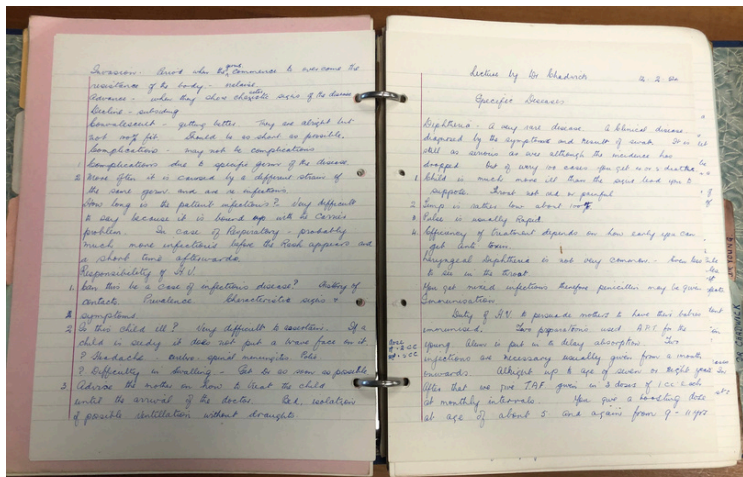 Invasion - Period when the germs commence to overcome the
resistance of the body. - malaise
Advance - when they show characteristic signs of the disease
Decline - subsiding
Convalescent - getting better. They are alright but
not 100% fit. Should be as short as possible.
Complications - may not be complications
1 Complications due to specific germ of the disease
2 More often it is caused by a different strain of
the same germ and are so infectious
How long is the patient infectious? Very difficult
to say because it is bound up with the carrier
problem. In case of Respiratory - probably
much more infectious before the Rash appears and
a short time afterwards.
Responsibility of H.V.
1. Can this be a case of infectious disease? History of
contacts. Prevalence. Characteristic signs &
symptoms
2 Is this child ill? Very difficult to ascertain. If a
child is sickly it does not put a brave face on it.
? Headache - cerebro-spinal meningitis Polio
? Difficulty in swallowing - Get Dr as soon as possible
3 Advise the mother on how to treat the child
until the arrival of the doctor. Bed, isolation
if possible ventilation without draughts.
Lecture by Dr Chadwick
Specific Diseases
Diphtheria - A very rare disease. A Clinical disease
diagnosed by the symptoms and result of swab. It is
still as serious as ever although the incidence has
dropped. Out of every 100 cases you get
1 Child is much more ill than the signs lead you to
suppose. Throat not red or painful
2 Temp is rather low about 100°F
3 Pulse is usually Rapid
4 Efficiency of treatment depends on how early you can
get anti toxin.
Laryngeal Diphtheria is not very common.
to see in the throat
You get mixed infections therefore penicillin may be given
Immunisation
Duty of H.V. to persuade mothers to have their babies
immunised. Two preparations used A.P.T. for the
young Alum is put in to delay absorption. Two
infections are necessary usually given from 9 months
onwards. Alright up to age of seven or eight years
After that we give T.A.F given in 3 doses of 1 cc each
at monthly intervals. You give a boosting dose
at age of about 5 and again from 9 - 11 yrs